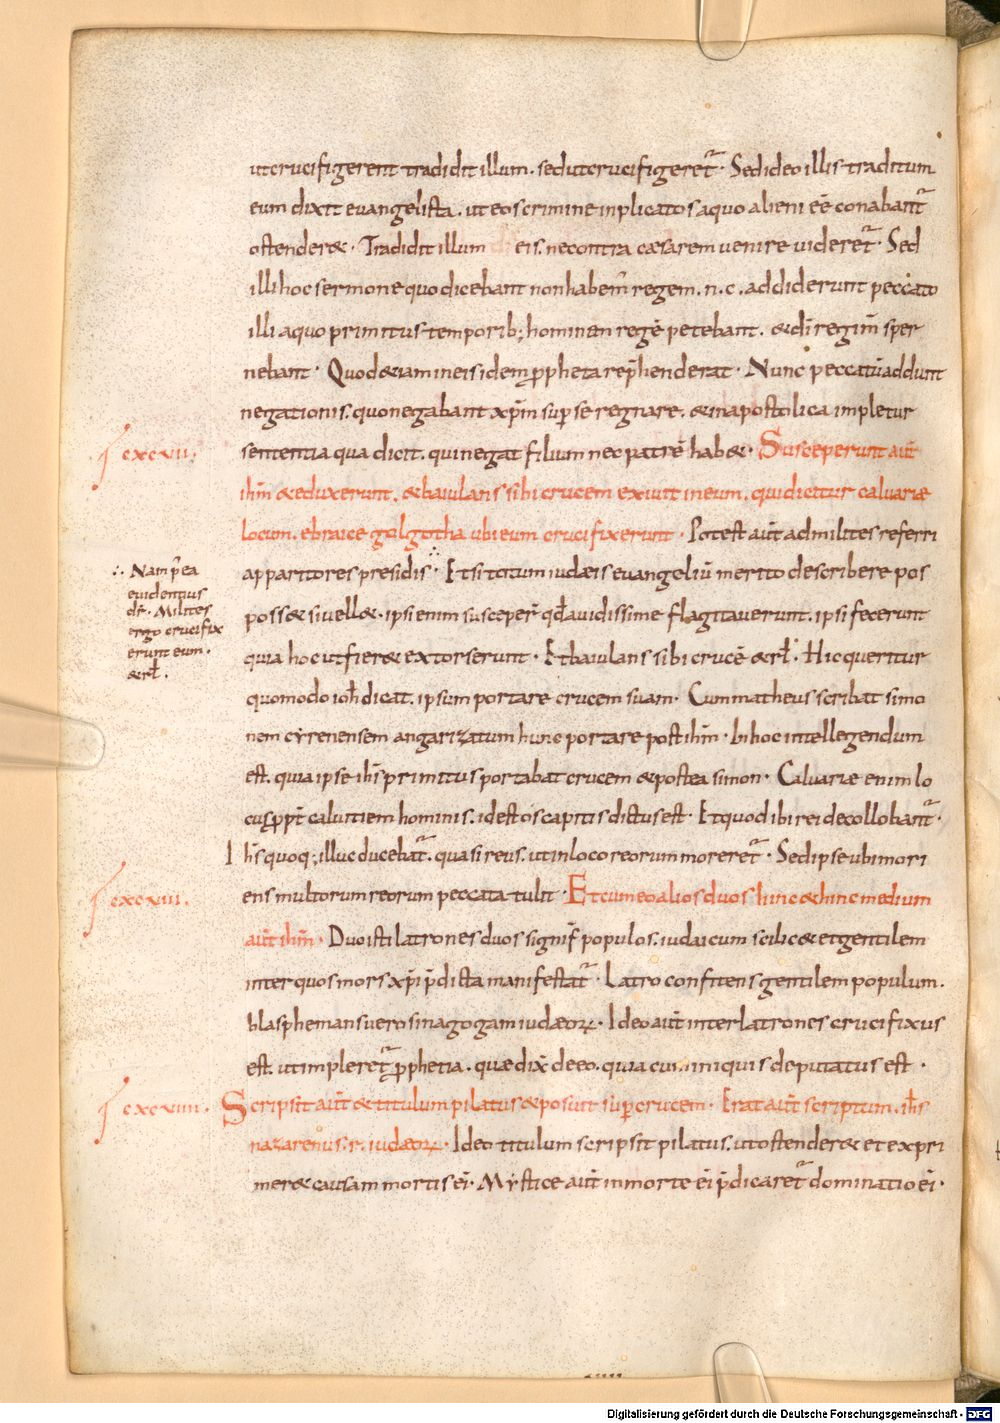 utcrucifigerent tradidit illum. sed ut crucifigeret᷑· Sed ideo illis traditum
eum dixit evangelista. ut eos crimine inplicatos a quo alieni eē conabant᷑
ostender&· Tradidit illum eis. ne contra cæsarem venire videret᷑· Sed
illi hoc sermone quo dicebant non habem᷒ regem. n. c. addiderunt peccato
illi a quo primitus temporib; hominem regē petebant. & dī regim̄ sper
nebant· Quod &iam in eis idem ꝓpheta rep̄henderat· Nunc peccatū addunt
negationis. quo negabant xp̄m sup se regnare. & in apostolica impletur
sententia qua dicit. qui negat filium nec patrē hab&· Susceperunt aut̄
cxcvii.
ih̄m & eduxerunt. & baiulans sibi crucem exivit in eum. qui dicitur calvariæ
locum. ebraice golgotha ubi eum crucifixerunt· Potest aut̄ ad milites referri
apparitores presidis ∴ Et si totum iudæis evangeliū merito describere pos
∴ Nam p᷒ ea
evidentius
dr̄. Milites
ergo crucifix
erunt eum.
& rł.
poss& si vell&. ipsi enim susceper̄ qđ avidissime flagitaverunt. ipsi fecerunt
quia hoc ut fier& extorserunt· Et baiulans sibi crucē & rł· Hic queritur
quomodo ioh̄ dicat. ipsum portare crucem suam· Cum matheus scribat simo
nem cyrenensem angarizatum hunc portare post ih̄m· Ibi hoc intellegendum
est. quia ipse ih̄s primitus portabat crucem & postea simon· Calvariæ enim lo
cus ꝓpt̄ calvitiem hominis. id est os capitis dictus est· Et quod ibi rei decollobant᷑·
Ih̄s quoq; illuc ducebat᷑. quasi reus. ut in loco reorum moreret᷑· Sed ipse ubi mori
ens multorum reorum peccata tulit· Et cum eo alios duos hinc & hinc medium
cxcviii.
aut̄ ih̄m· Duo isti latrones duos signif̄ populos. iudaicum scilic& et gentilem
inter quos mors xp̄i p̄dicta manifestat᷑· Latro confitens gentilem populum.
blasphemans vero sinagogam iudæoꝝ· Ideo aut̄ inter latrones crucifixus
est. ut impleret᷑ ꝓphetia. quæ dix̄ de eo. quia cum iniquis deputatus est·
cxcviiii. Scripsit aut̄ & titulum pilatus & posuit sup crucem· Erat aut̄ scriptum. ih̄s
nazarenus. r. iudæoꝝ· Ideo titulum scripsit pilatus. ut ostender& et expri
mer& causam mortis ei᷒· Mystice aut̄ in morte ei᷒ p̄dicaret᷑ dominatio ei᷒·
Digitalisierung gefördert durch die Deutsche Forschungsgemeinschaft - DFG